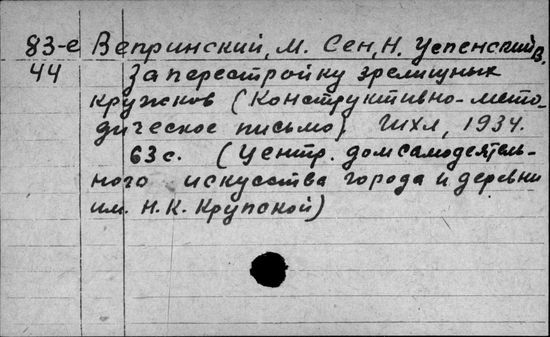 83-е Вепринский, М. Сен, Н. Успенский, В.
44 За перестройку зрелищных
кружков (Конструктивно-мето-
дическое письмо). 1934.
63 с. (Центр. дом самодеятель-
ного искусства города и деревни
им. Н. К. Крупской)